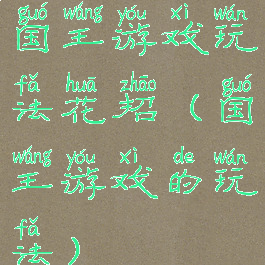 guó wáng yóu xì wán
国王游戏玩
fǎ huā zhāo guó
法花招（国
wáng yóu xì de wán
王游戏的玩
fǎ
法）